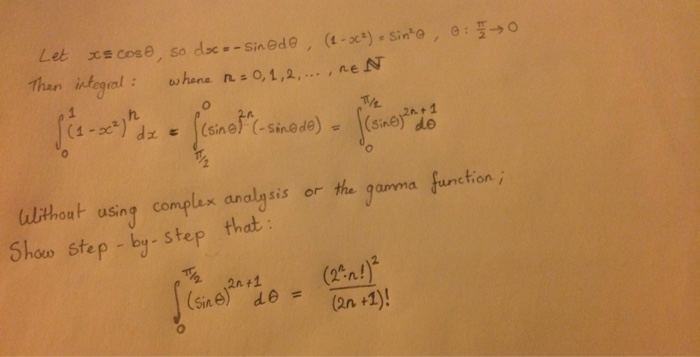 Let x ≡ cosθ, so dx = -sinθdθ, (1-x²) = sin²θ, θ: π/2 → 0
Then integral: where n = 0,1,2,..., n∈ℕ
∫₀¹ (1-x²)ⁿ dx = ∫_{π/2}^{0} (sinθ)^{2n} (-sinθdθ) = ∫₀^{π/2} (sinθ)^{2n+1} dθ
Without using complex analysis or the gamma function;
Show step-by-step that:
∫₀^{π/2} (sinθ)^{2n+1} dθ = (2ⁿ·n!)² / (2n+1)!